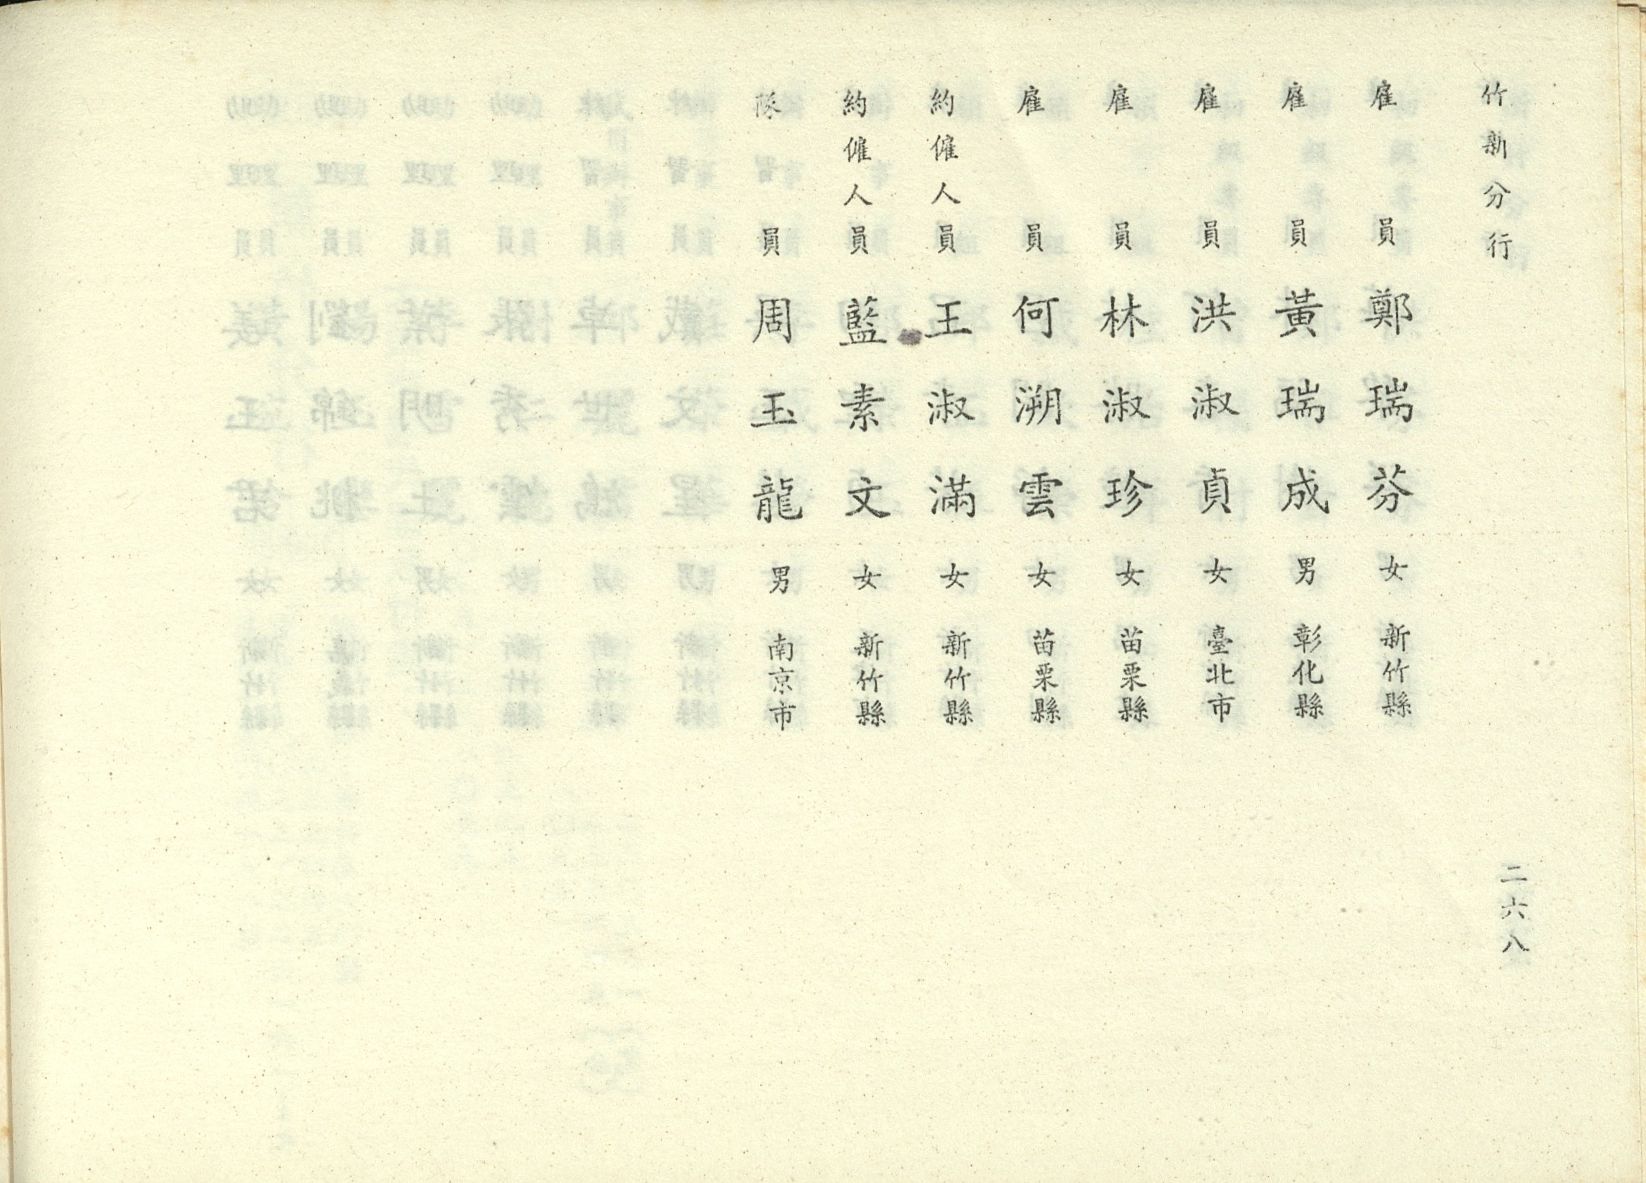 竹新分行
雇員 鄭瑞芬 女 新竹縣
雇員 黃瑞成 男 彰化縣
雇員 洪淑貞 女 臺北市
雇員 林淑珍 女 苗栗縣
雇員 何溯雲 女 苗栗縣
約僱人員 王淑滿 女 新竹縣
約僱人員 藍素文 女 新竹縣
隊員 周玉龍 男 南京市
二六八